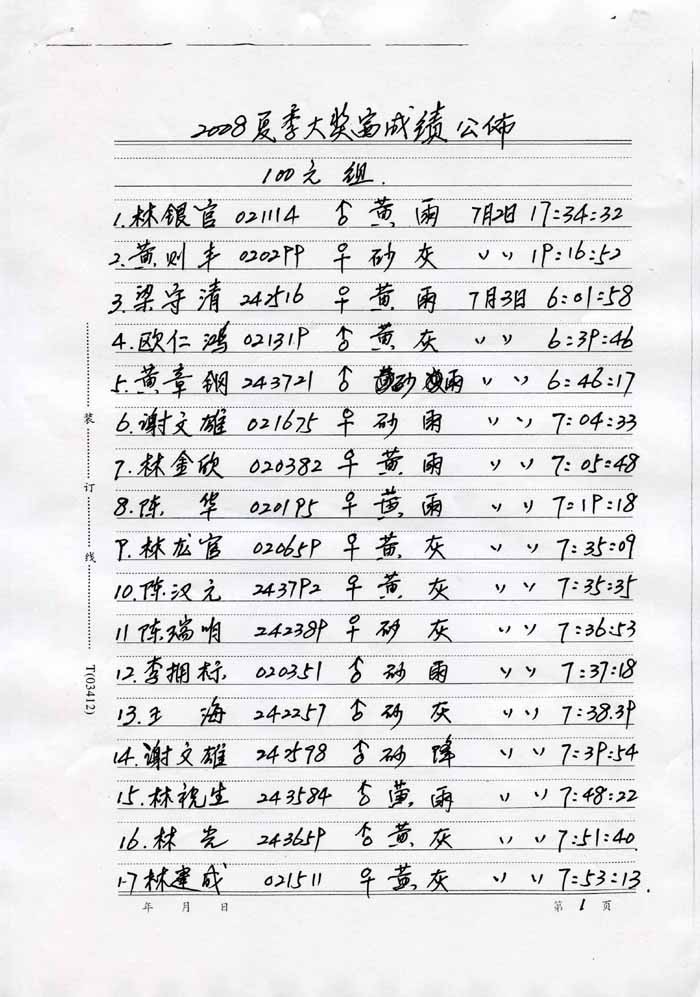 2008夏季大奖宫成绩公佈
100元组.
1.林银官 021114 ♂ 黄 雨 7月2日 17:34:32
2.黄则丰 020299 ♀ 砂 灰 〃 19:16:52
3.梁守清 242516 ♀ 黄 雨 7月3日 6:01:58
4.欧仁鸿 021319 ♂ 黄 灰 〃 6:39:46
5.黄章钢 243721 ♂ 砂 雨 〃 6:46:17
6.谢文雄 021675 ♀ 砂 雨 〃 7:04:33
7.林金欣 020382 ♀ 黄 雨 〃 7:05:48
8.陈 华 020195 ♀ 黄 雨 〃 7:19:18
9.林龙官 020659 ♀ 黄 灰 〃 7:35:09
10.陈汉元 243792 ♀ 黄 灰 〃 7:35:35
11陈瑞明 242389 ♀ 砂 灰 〃 7:36:53
12.李拥标 020351 ♂ 砂 雨 〃 7:37:18
13.王 海 242257 ♂ 砂 灰 〃 7:38.39
14.谢文雄 242598 ♂ 砂 降 〃 7:39:54
15.林祝生 243584 ♂ 黄 雨 〃 7:48:22
16.林 光 243659 ♂ 黄 灰 〃 7:51:40
17林建成 021511 ♀ 黄 灰 〃 7:53:13.
年 月 日 第 1 页
装 订 线 T(03412)